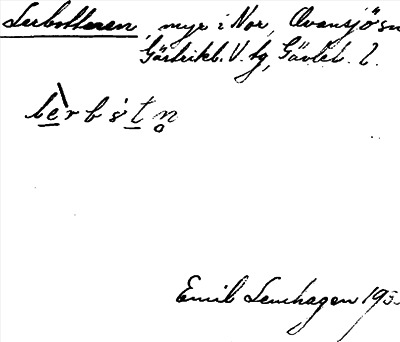 Lerbotteren, myr i Nor, Ovansjö sn
Gästrikl. V. tg, Gävleb. l.
lèrbṡtn̥
Emil Lenhagen 195